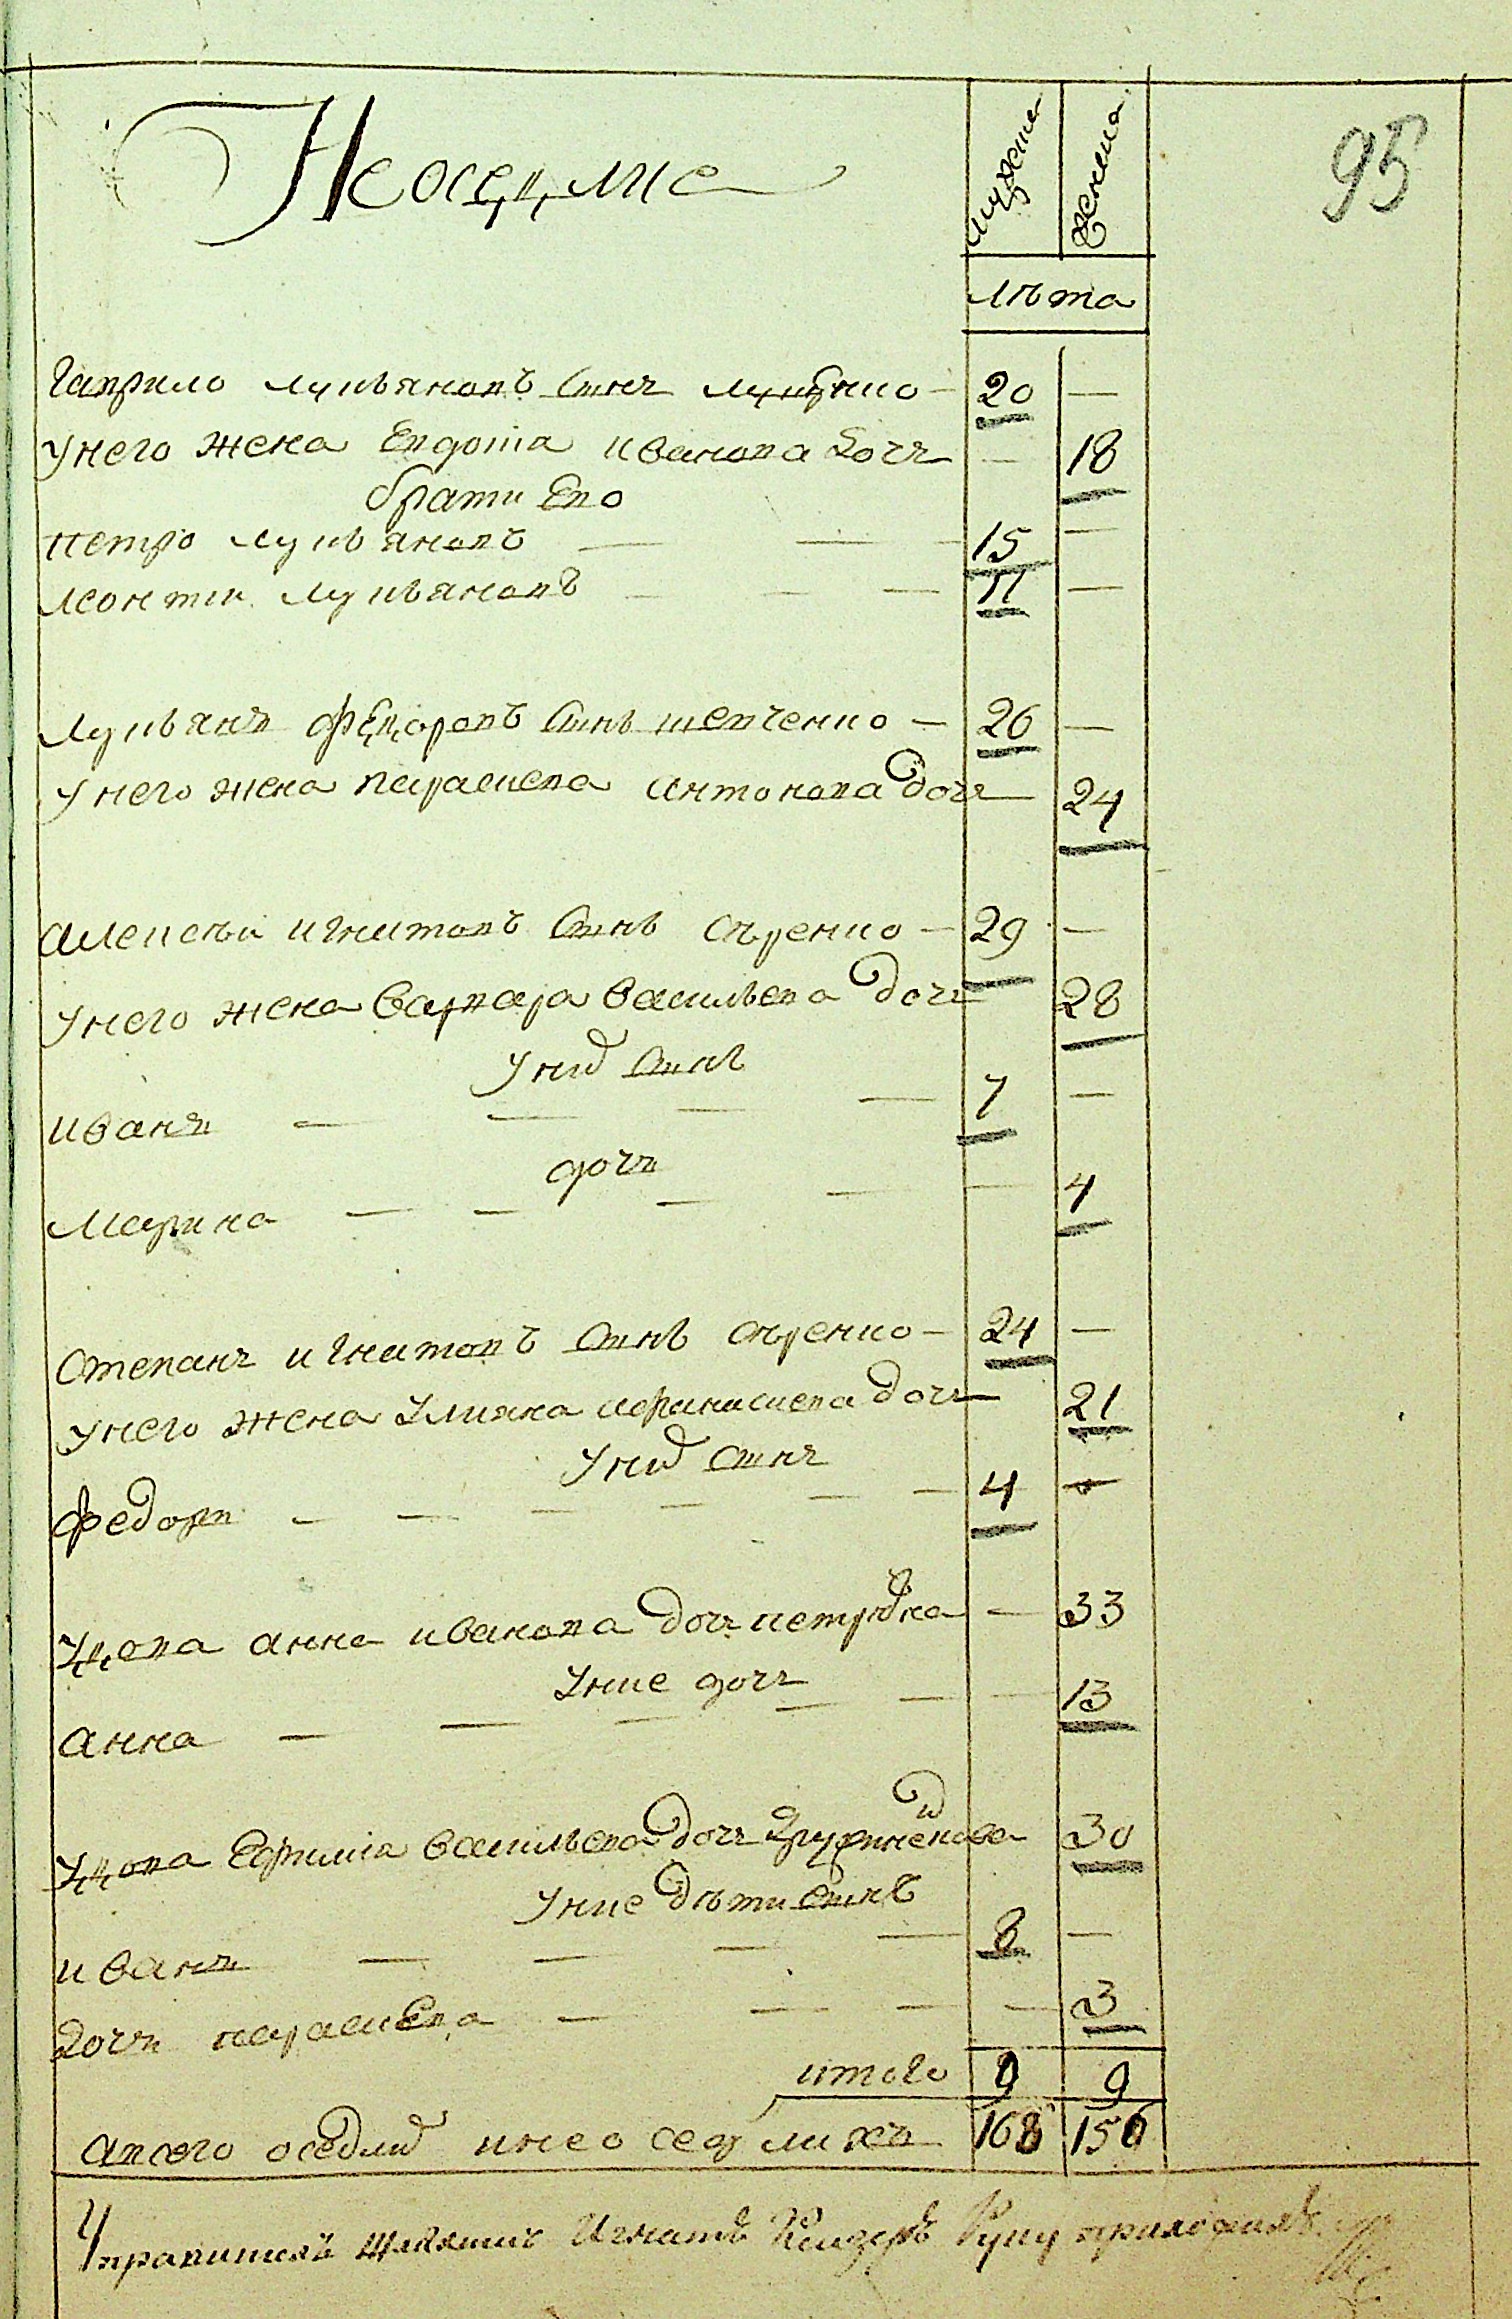 95
Неоседлие
мужска женска
лѣта
Гаврило лукьяновъ синъ луценко — 20 —
у него жена Евдокия иванова дочъ — 18
брати Его
петро лукьяновъ — — — 15 —
леонтии лукьяновъ — — — 11 —
лукьянъ федоровъ синъ шевченко — 26 —
у него жена параскева антонова дочъ — 24
алексѣи игнатовъ синъ сѣренко — 29 —
у него жена варвара васильева дочъ 28
у них синъ
иванъ — — — — 7 —
дочъ
марина — — — — — 4
степанъ игнатовъ синъ сѣренко — 24 —
у него жена улияна дочъ — 21
у них синъ
федоръ — — — — — — 4 —
вдова анна иванова дочъ — 33
у ние дочъ
анна — — — — — — 13
вдова васильева дочъ 30
у ние дѣти синъ
иванъ — — — — 8 —
дочъ параскева — — — — 3
итого 9 9
а всего оседлих и неоседлихъ 168 156
Управитель Игнатъ Руку приложилъ